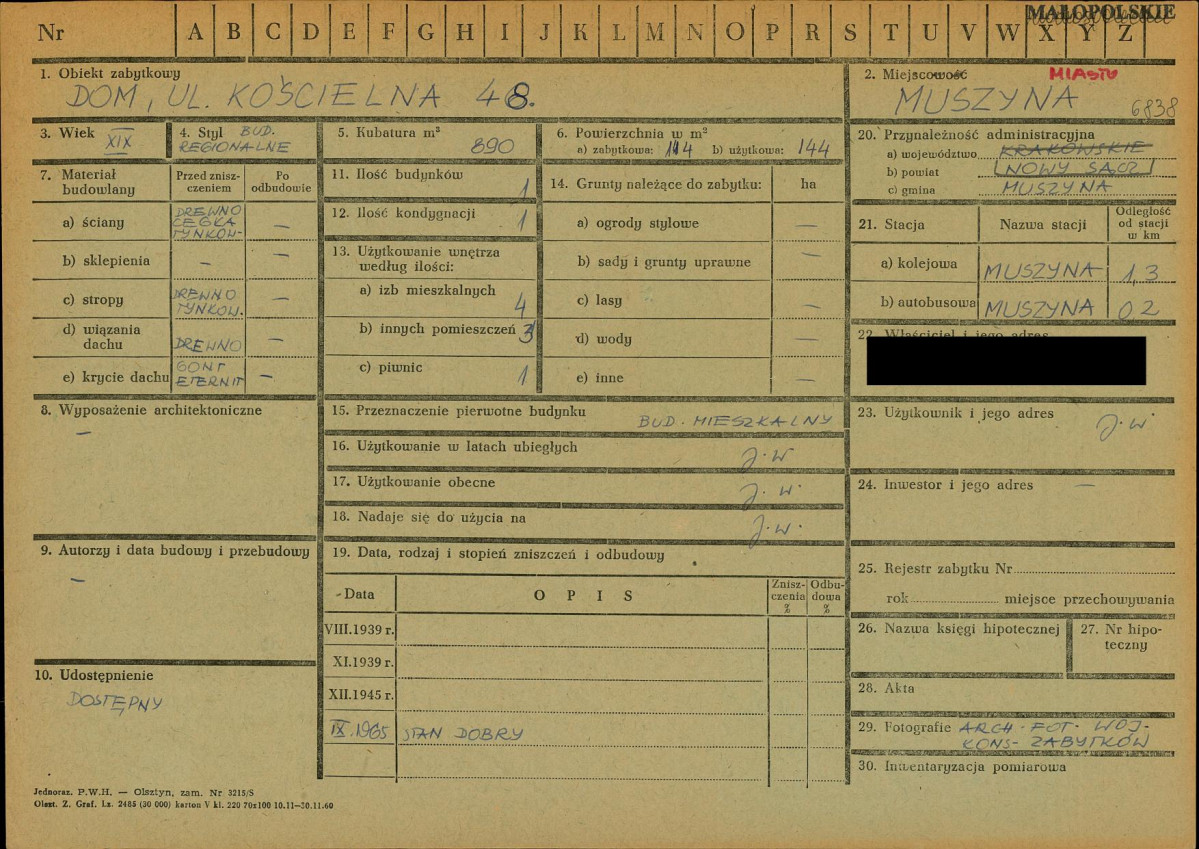 MAŁOPOLSKIE
Nr A B C D E F G H I J K L M N O P R S T U V W X Y Z
1. Obiekt zabytkowy
DOM, UL. KOŚCIELNA 48.
2. Miejscowość MIASTO
MUSZYNA 6838
3. Wiek XIX
4. Styl BUD.
REGIONALNE
5. Kubatura m³
890
6. Powierzchnia w m²
a) zabytkowa: 144 b) użytkowa: 144
20. Przynależność administracyjna
a) województwo KRAKOWSKIE
b) powiat NOWY SĄCZ
c) gmina MUSZYNA
7. Materiał budowlany
Przed zniszczeniem
Po odbudowie
a) ściany DREWNO
CEGŁA
TYNKOW- —
b) sklepienia — —
c) stropy DREWNO
TYNKOW. —
d) wiązania
dachu DREWNO —
e) krycie dachu GONT
ETERNIT —
11. Ilość budynków 1
12. Ilość kondygnacji 1
13. Użytkowanie wnętrza
według ilości:
a) izb mieszkalnych 4
b) innych pomieszczeń 3
c) piwnic 1
14. Grunty należące do zabytku: ha
a) ogrody stylowe —
b) sady i grunty uprawne —
c) lasy —
d) wody —
e) inne —
21. Stacja Nazwa stacji Odległość
od stacji
w km
a) kolejowa MUSZYNA 1,3
b) autobusowa MUSZYNA 0.2
22. Właściciel i jego adres
8. Wyposażenie architektoniczne
—
15. Przeznaczenie pierwotne budynku
BUD. MIESZKALNY
16. Użytkowanie w latach ubiegłych
J.W
17. Użytkowanie obecne
J.W.
18. Nadaje się do użycia na
J.W.
23. Użytkownik i jego adres
J.W.
24. Inwestor i jego adres —
9. Autorzy i data budowy i przebudowy
—
19. Data, rodzaj i stopień zniszczeń i odbudowy
Data OPIS Znisz-
czenia
% Odbu-
dowa
%
VIII.1939 r.
XI.1939 r.
XII.1945 r.
IX.1965 STAN DOBRY
25. Rejestr zabytku Nr
rok miejsce przechowywania
26. Nazwa księgi hipotecznej
27. Nr hipo-
teczny
10. Udostępnienie
DOSTĘPNY
28. Akta
29. Fotografie ARCH. FOT. WOJ.
KONS- ZABYTKÓW
30. Inwentaryzacja pomiarowa
Jednoraz. P.W.H. — Olsztyn, zam. Nr 3215/S
Olszt. Z. Graf. Lz. 2485 (30 000) karton V kl. 220 70x100 10.11—30.11.60